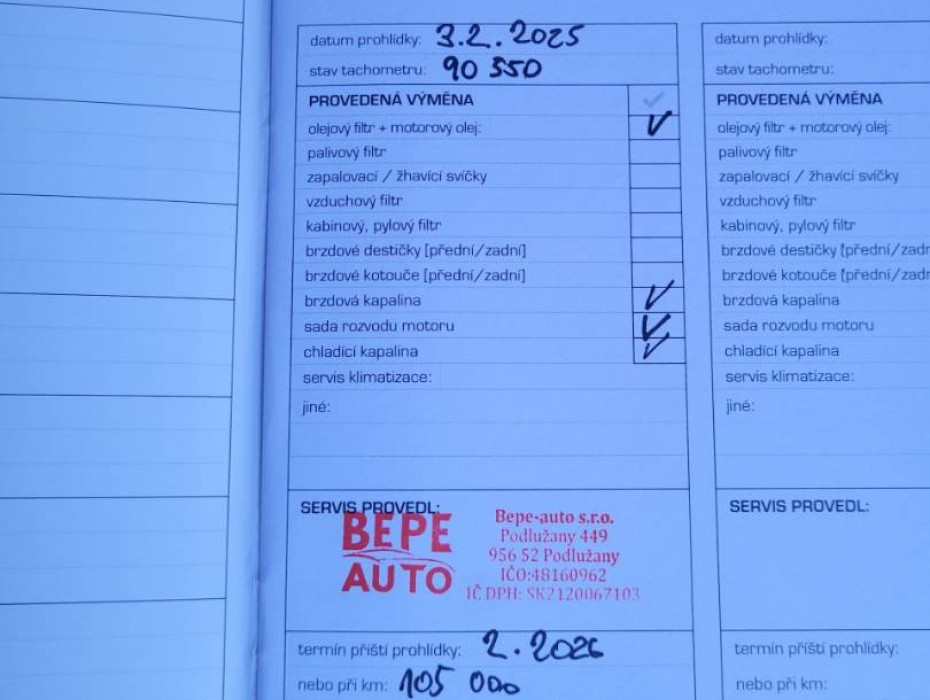 datum prohlídky: 3.2.2025
stav tachometru: 90 550
PROVEDENÁ VÝMĚNA
olejový filtr + motorový olej:
palivový filtr
zapalovací / žhavící svíčky
vzduchový filtr
kabinový, pylový filtr
brzdové destičky [přední/zadní]
brzdové kotouče [přední/zadní]
brzdová kapalina
sada rozvodu motoru
chladící kapalina
servis klimatizace:
jiné:
SERVIS PROVEDL:
BEPE
AUTO
Bepe-auto s.r.o.
Podlužany 449
956 52 Podlužany
IČO:48160962
IČ DPH: SK2120067103
termín příští prohlídky: 2.2026
nebo při km: 105 000
datum prohlídky:
stav tachometru:
PROVEDENÁ VÝMĚNA
olejový filtr + motorový olej:
palivový filtr
zapalovací / žhavící svíčky
vzduchový filtr
kabinový, pylový filtr
brzdové destičky [přední/zadn
brzdové kotouče [přední/zadn
brzdová kapalina
sada rozvodu motoru
chladící kapalina
servis klimatizace:
jiné:
SERVIS PROVEDL:
termín příští prohlídky:
nebo při km: